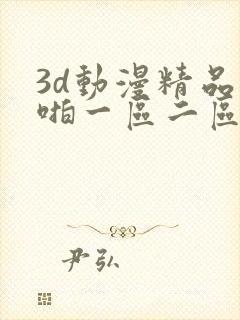 3d動漫精品
啪一區二區
尹弘